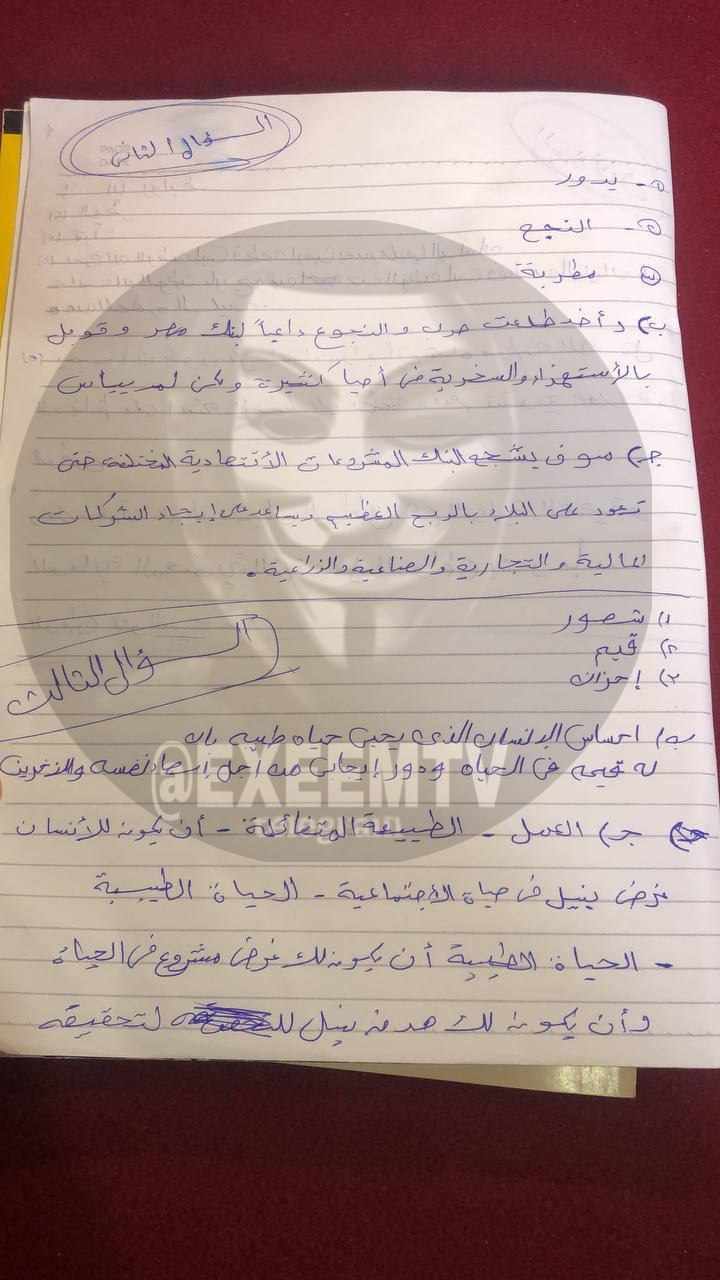 السؤال الثاني
١- يدور
٢- النجع
٣ مطربة
ب) وأخذ طلعت حرب والنجوع داعياً لبنك مصر وقوبل
بالأستهزاء والسخرية في أحيا كثيرة ولكن لم ييأس
جـ) سوف يشجع البنك المشروعات الأقتصادية المختلفة حتى
تعود على البلاد بالربح العظيم وساعد على إيجاد الشركات
المالية والتجارية والصناعية والزراعية.
السؤال الثالث
١)
٢) قيم
٣) إحزان
ب) احساس الإنسان الذي يحيى حياه طيبه بان
له قيمه في الحياه ودور إيجابي من اجل إسعاد نفسه والاخرين
جـ) العمل - الطبيعة المتفائلة - أن يكون للأنسان
غرض ينبيل في حياة الأجتماعية - الحياة الطيبية
- الحياة الطيبة أن يكون لك غرض مشروع في الحياة
وأن يكون لك هدف بنيل لتحقيقه
@EXEEMTV
telegram